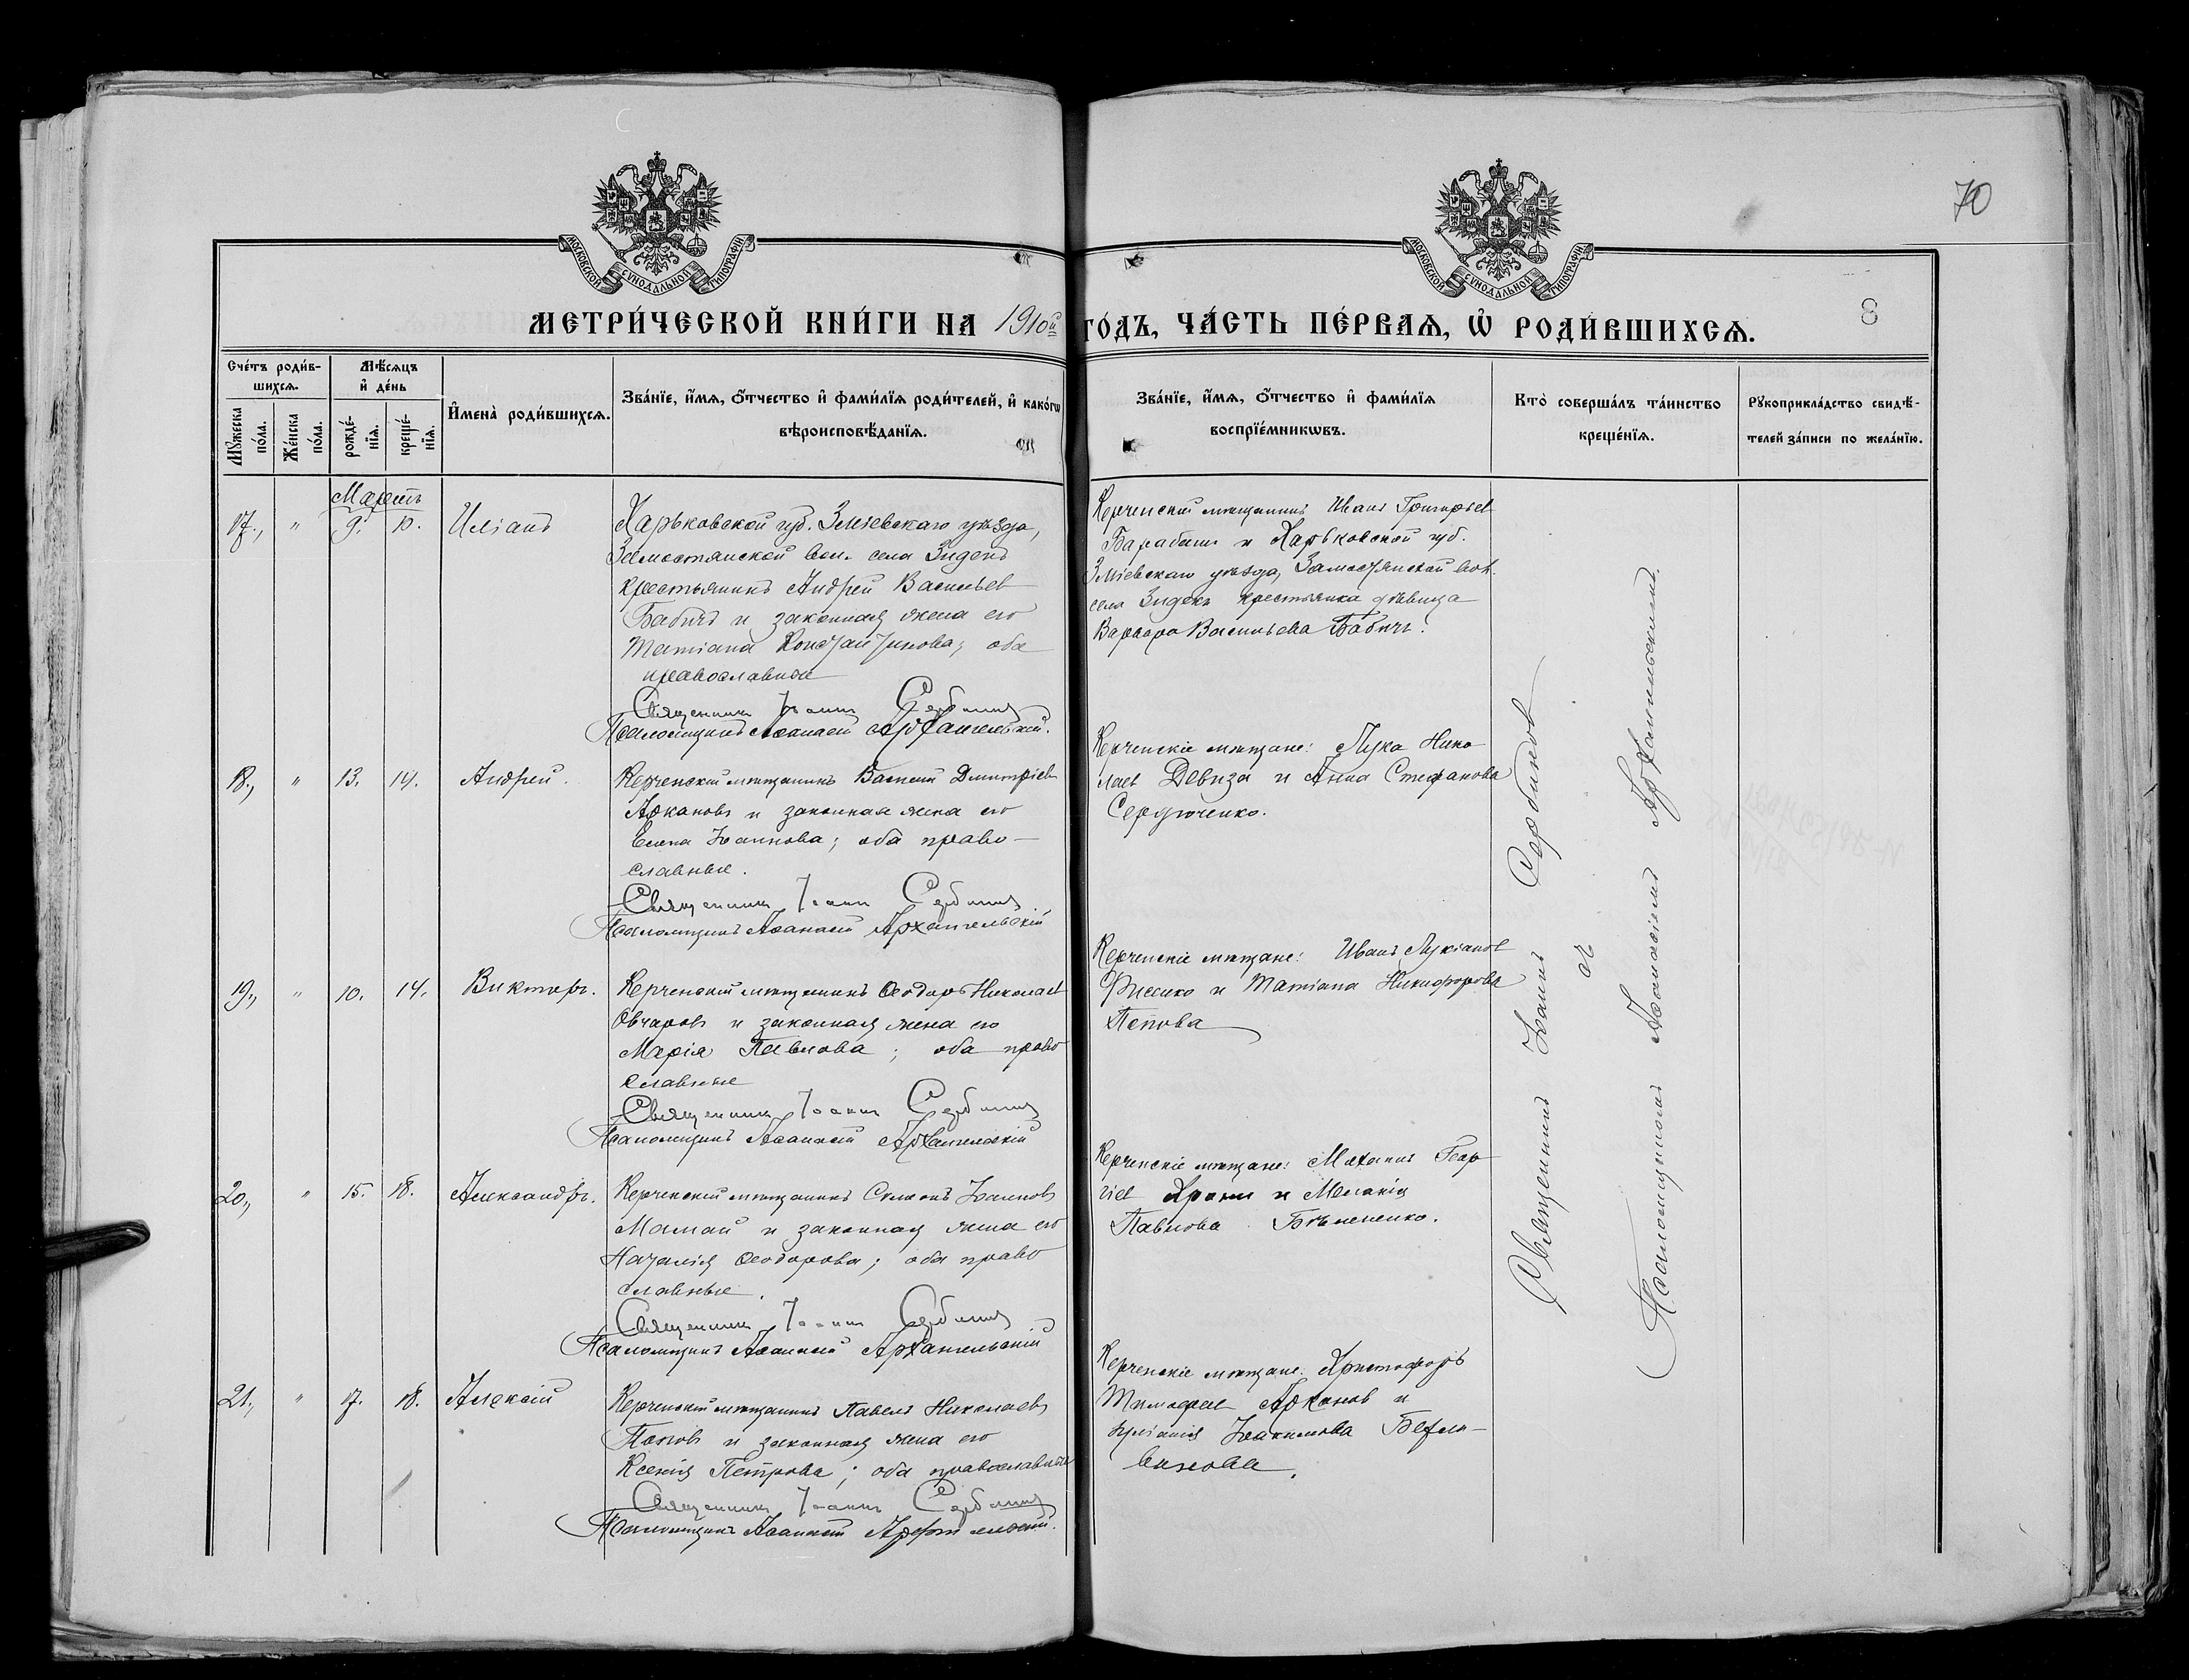 70
8
МОСКОВСКОЙ СѴНОДАЛЬНОЙ ТИПОГРАФІИ
МОСКОВСКОЙ СѴНОДАЛЬНОЙ ТИПОГРАФІИ
МЕТРИ́ЧЕСКОЙ КНИ́ГИ НА 1910й ГО́ДЪ, ЧА́СТЬ ПЕ́РВАѦ, Ѡ҆ РОДИ́ВШИХСѦ.
Сче́тъ роди́в-
шихсѧ.
Мꙋ́жеска по́ла.
Же́нска по́ла.
Мѣ́сѧцъ
и҆ де́нь
рожде́-
нїѧ.
креще́-
нїѧ.
И҆мена̀ роди́вшихсѧ.
Зва́нїе, и҆́мѧ, ѻ҆́тчество и҆ фами́лїѧ роди́телей, и҆ како́гѡ
вѣроисповѣ́данїѧ.
Зва́нїе, и҆́мѧ, ѻ҆́тчество и҆ фами́лїѧ
воспрїе́мникѡвъ.
Кто̀ соверша́лъ та́инство
креще́нїѧ.
Рꙋкоприкла́дство свидѣ́-
телей за́писи по жела́нїю.
Мартъ
17., " 9. 10. Иліанъ
Харьковской губ. Зміевскаго уѣзда,
Замостянской вол. села Зидекъ
крестьянинъ Андрей Васильев
Бабичъ и законная жена его
Татіана Константинова; оба
православные
Священникъ Іоаннъ Сербиновъ
Псаломщикъ Аѳанасій Архангельскій.
Керченскій мѣщанинъ Иванъ Григорьев
Барабаш и Харьковской губ.
Зміевскаго уѣзда, Замостянской вол.
села Зидекъ крестьянка дѣвица
Варвара Васильева Бабичъ.
18., " 13. 14. Андрей.
Керченскій мѣщанинъ Василій Димитріевъ
Аржановъ и законная жена его
Елена Іоаннова; оба право-
славные.
Священникъ Іоаннъ Сербиновъ
Псаломщикъ Аѳанасій Архангельскій
Керченскіе мѣщане: Лука Нико
лаев Девиза и Анна Стефанова
Сердюченко.
19., " 10. 14. Викторъ.
Керченскій мѣщанинъ Ѳеодоръ Николаев
Овчаровъ и законная жена его
Марія Павлова; оба право
славные
Священникъ Іоаннъ Сербиновъ
Псаломщикъ Аѳанасій Архангельскій
Керченскіе мѣщане: Иванъ Лукіанов
и Татіана Никифорова
Попова
20., " 15. 18. Александръ.
Керченскій мѣщанинъ Симеонъ Іоанновъ
Мамай и законная жена его
Наталія Ѳеодорова; оба право
славные.
Священникъ Іоаннъ Сербиновъ
Псаломщикъ Аѳанасій Архангельскій
Керченскіе мѣщане: Михаилъ Геор
гіев и Меланія
Павлова
21., " 17. 18. Алексій
Керченскій мѣщанинъ Павелъ Николаевъ
Поповъ и законная жена его
Ксенія Петрова; оба православные
Священникъ Іоаннъ Сербиновъ
Псаломщикъ Аѳанасій Архангельскій.
Керченскіе мѣщане: Христофоръ
Тимофеев Аржанов и
Іоакимова
Священникъ Іоаннъ Сербинов
с
Псаломщикомъ Аѳанасіемъ Архангельскимъ.